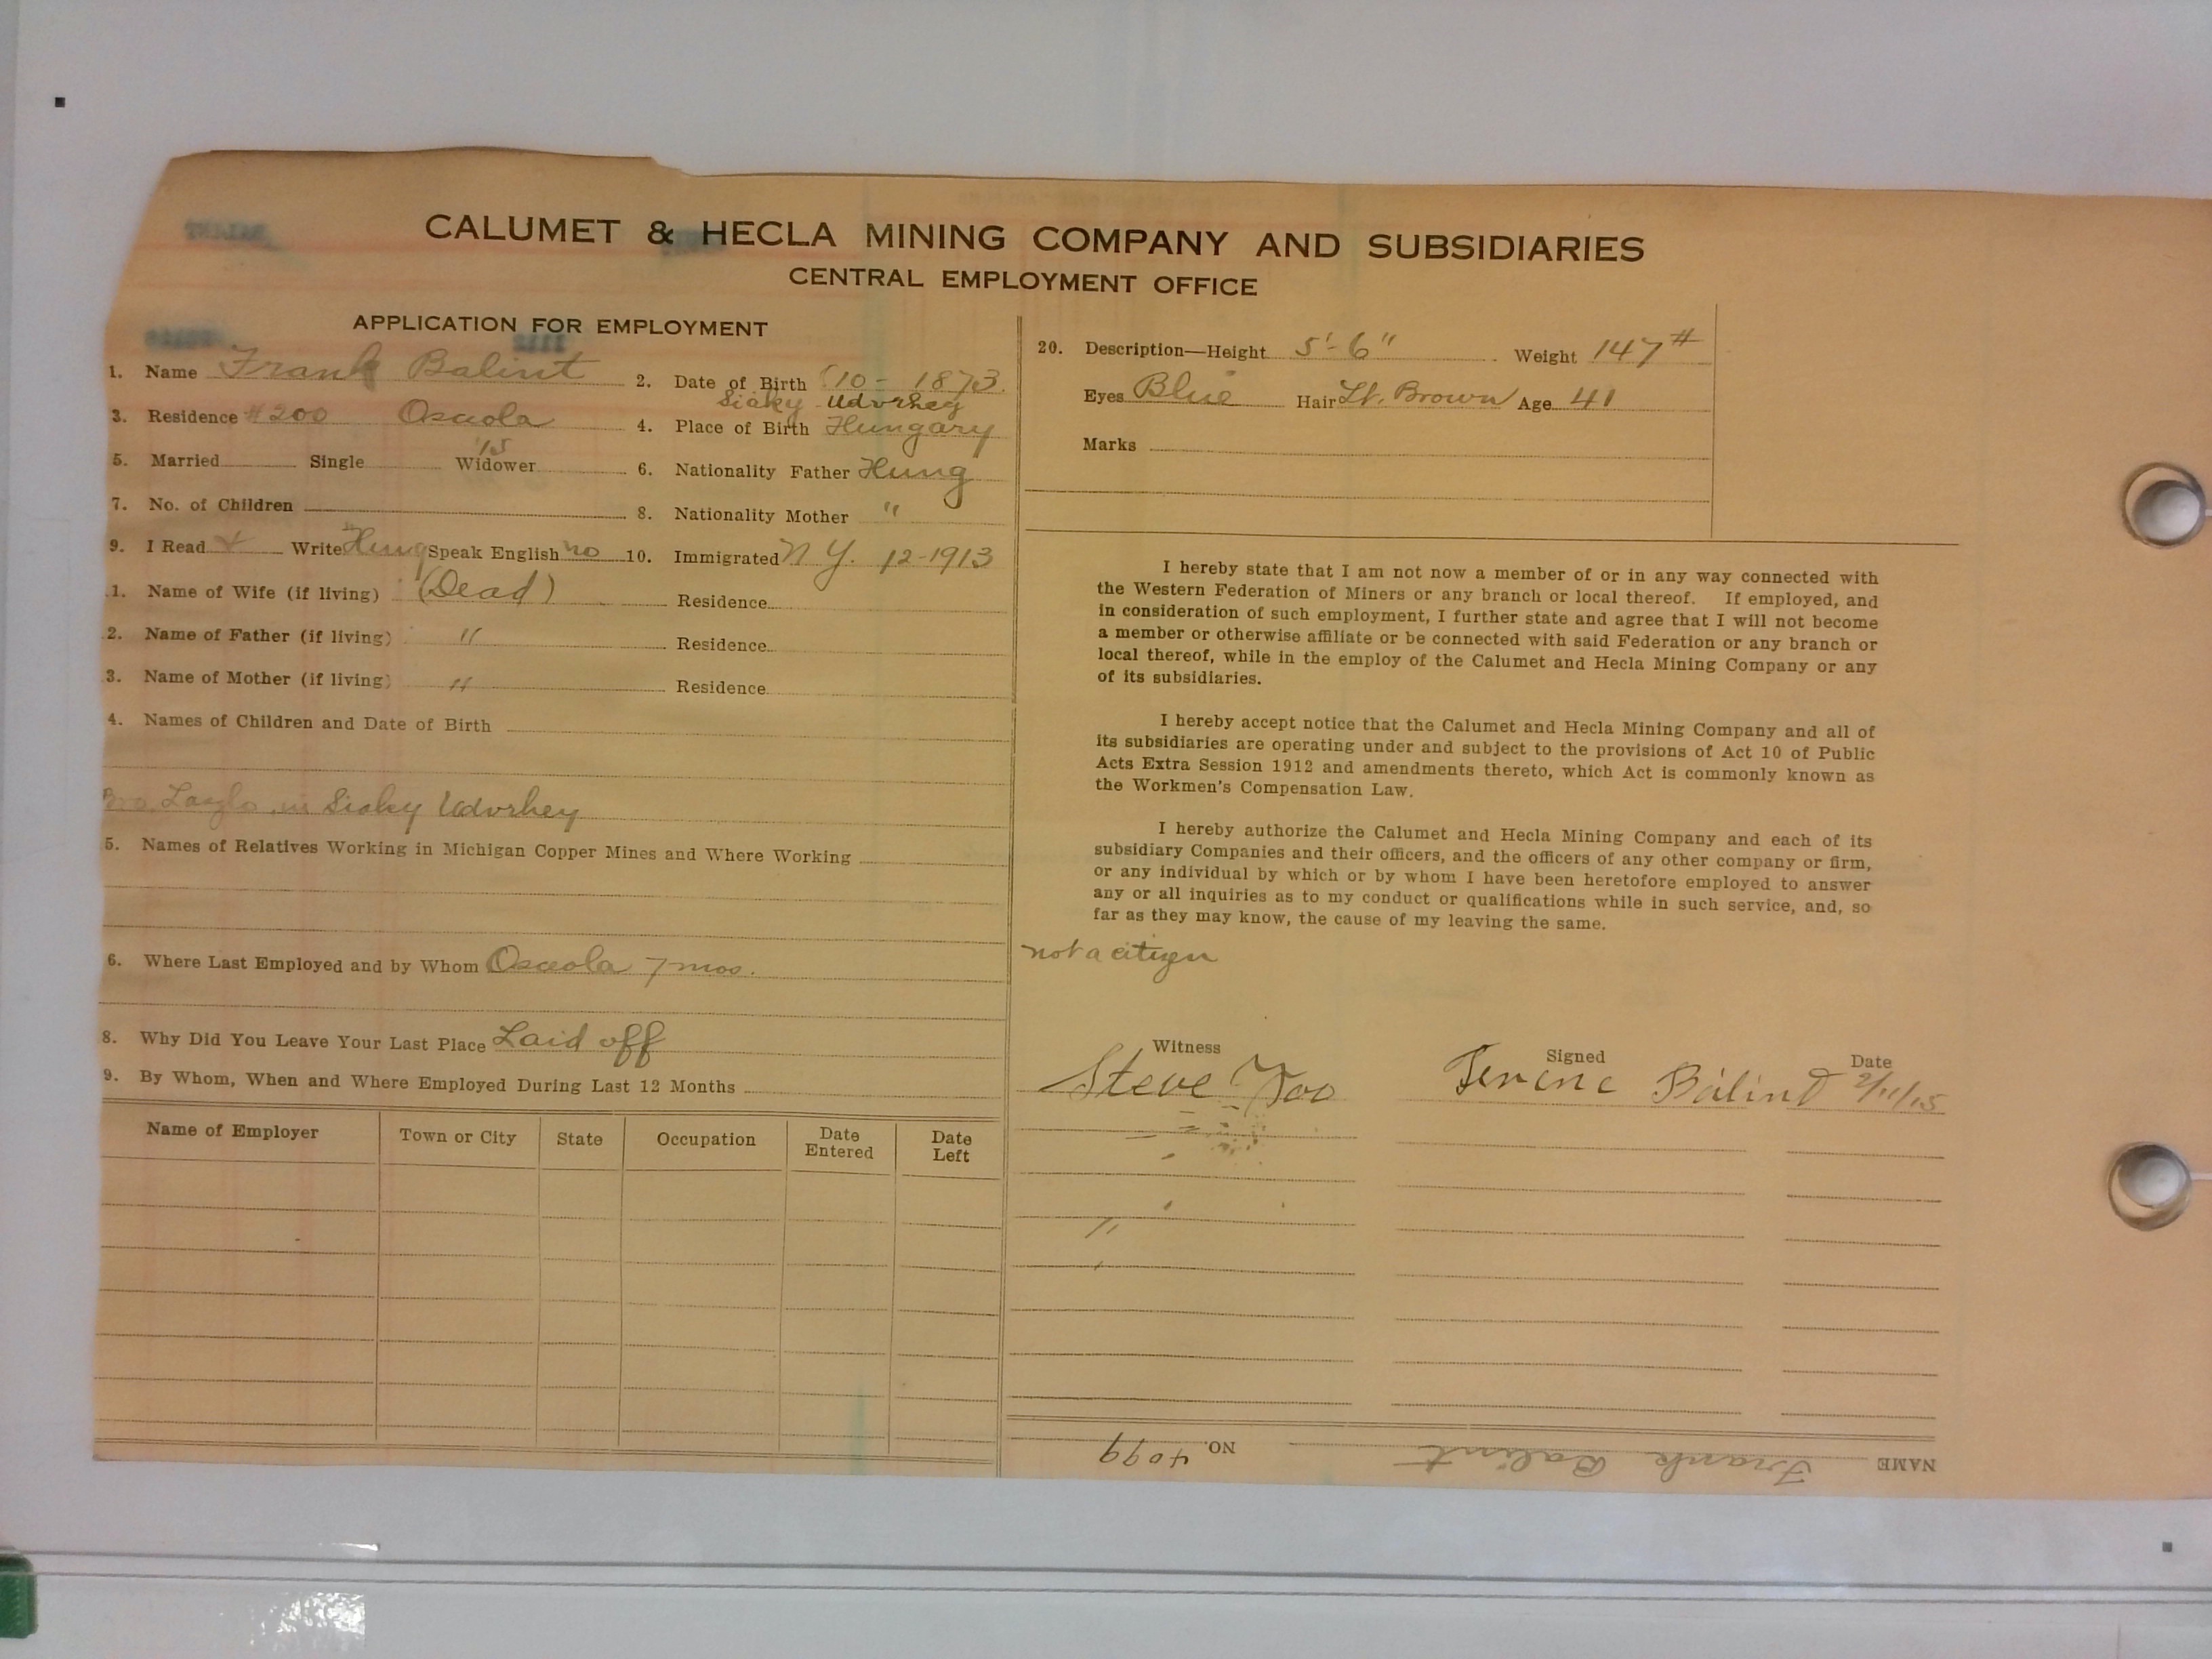 CALUMET & HECLA MINING COMPANY AND SUBSIDIARIES
CENTRAL EMPLOYMENT OFFICE
APPLICATION FOR EMPLOYMENT
1. Name Frank Balint
2. Date of Birth 10 - 1873.
3. Residence #200 Osceola
Siaky Udvrhey
4. Place of Birth Hungary
5. Married Single Widower '15
6. Nationality Father Hung
7. No. of Children
8. Nationality Mother "
9. I Read + Write Hung Speak English no
10. Immigrated N Y. 12-1913
1. Name of Wife (if living) (Dead) Residence
2. Name of Father (if living) " Residence
3. Name of Mother (if living) " Residence
4. Names of Children and Date of Birth
Bro. Laszlo in Siaky Udvrhey
5. Names of Relatives Working in Michigan Copper Mines and Where Working
6. Where Last Employed and by Whom Osceola 7 mos.
8. Why Did You Leave Your Last Place Laid off
9. By Whom, When and Where Employed During Last 12 Months
Name of Employer Town or City State Occupation Date Entered Date Left
20. Description—Height 5'-6" Weight 147#
Eyes Blue Hair Lt. Brown Age 41
Marks
I hereby state that I am not now a member of or in any way connected with
the Western Federation of Miners or any branch or local thereof. If employed, and
in consideration of such employment, I further state and agree that I will not become
a member or otherwise affiliate or be connected with said Federation or any branch or
local thereof, while in the employ of the Calumet and Hecla Mining Company or any
of its subsidiaries.
I hereby accept notice that the Calumet and Hecla Mining Company and all of
its subsidiaries are operating under and subject to the provisions of Act 10 of Public
Acts Extra Session 1912 and amendments thereto, which Act is commonly known as
the Workmen's Compensation Law.
I hereby authorize the Calumet and Hecla Mining Company and each of its
subsidiary Companies and their officers, and the officers of any other company or firm,
or any individual by which or by whom I have been heretofore employed to answer
any or all inquiries as to my conduct or qualifications while in such service, and, so
far as they may know, the cause of my leaving the same.
not a citizen
Witness Signed Date
Steve Ferenc Bálint 2/11/15
NAME Frank Balint NO. 4099